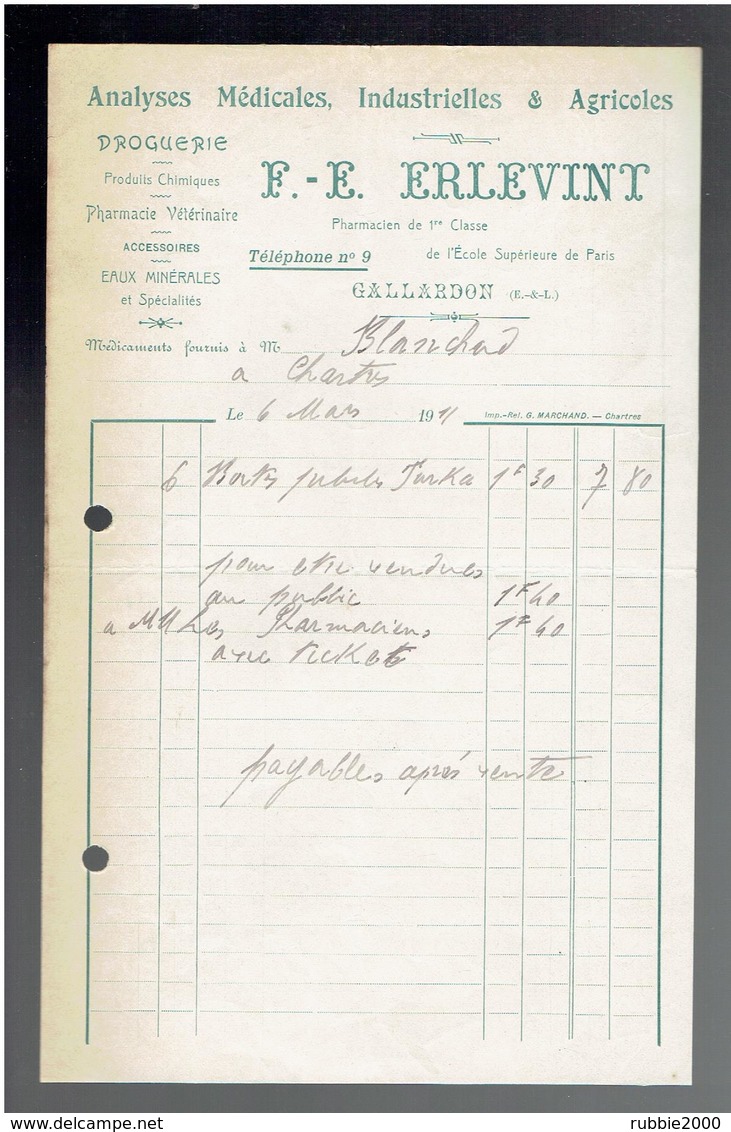 Analyses Médicales, Industrielles & Agricoles
DROGUERIE
Produits Chimiques
Pharmacie Vétérinaire
ACCESSOIRES
EAUX MINÉRALES
et Spécialités
F.-E. ERLEVINT
Pharmacien de 1re Classe
de l'École Supérieure de Paris
Téléphone no 9
GALLARDON (E.-&-L.)
Médicaments fournis à M Blanchard
a Chartres
Le 6 Mars 1911
Imp.-Rel. G. MARCHAND. — Chartres
6 Boites Turka 1F 30 7 80
pour etre vendues
au public 1F 60
a MM Les Pharmaciens 1F 40
avec tickets
payables après vente
rubbie2000